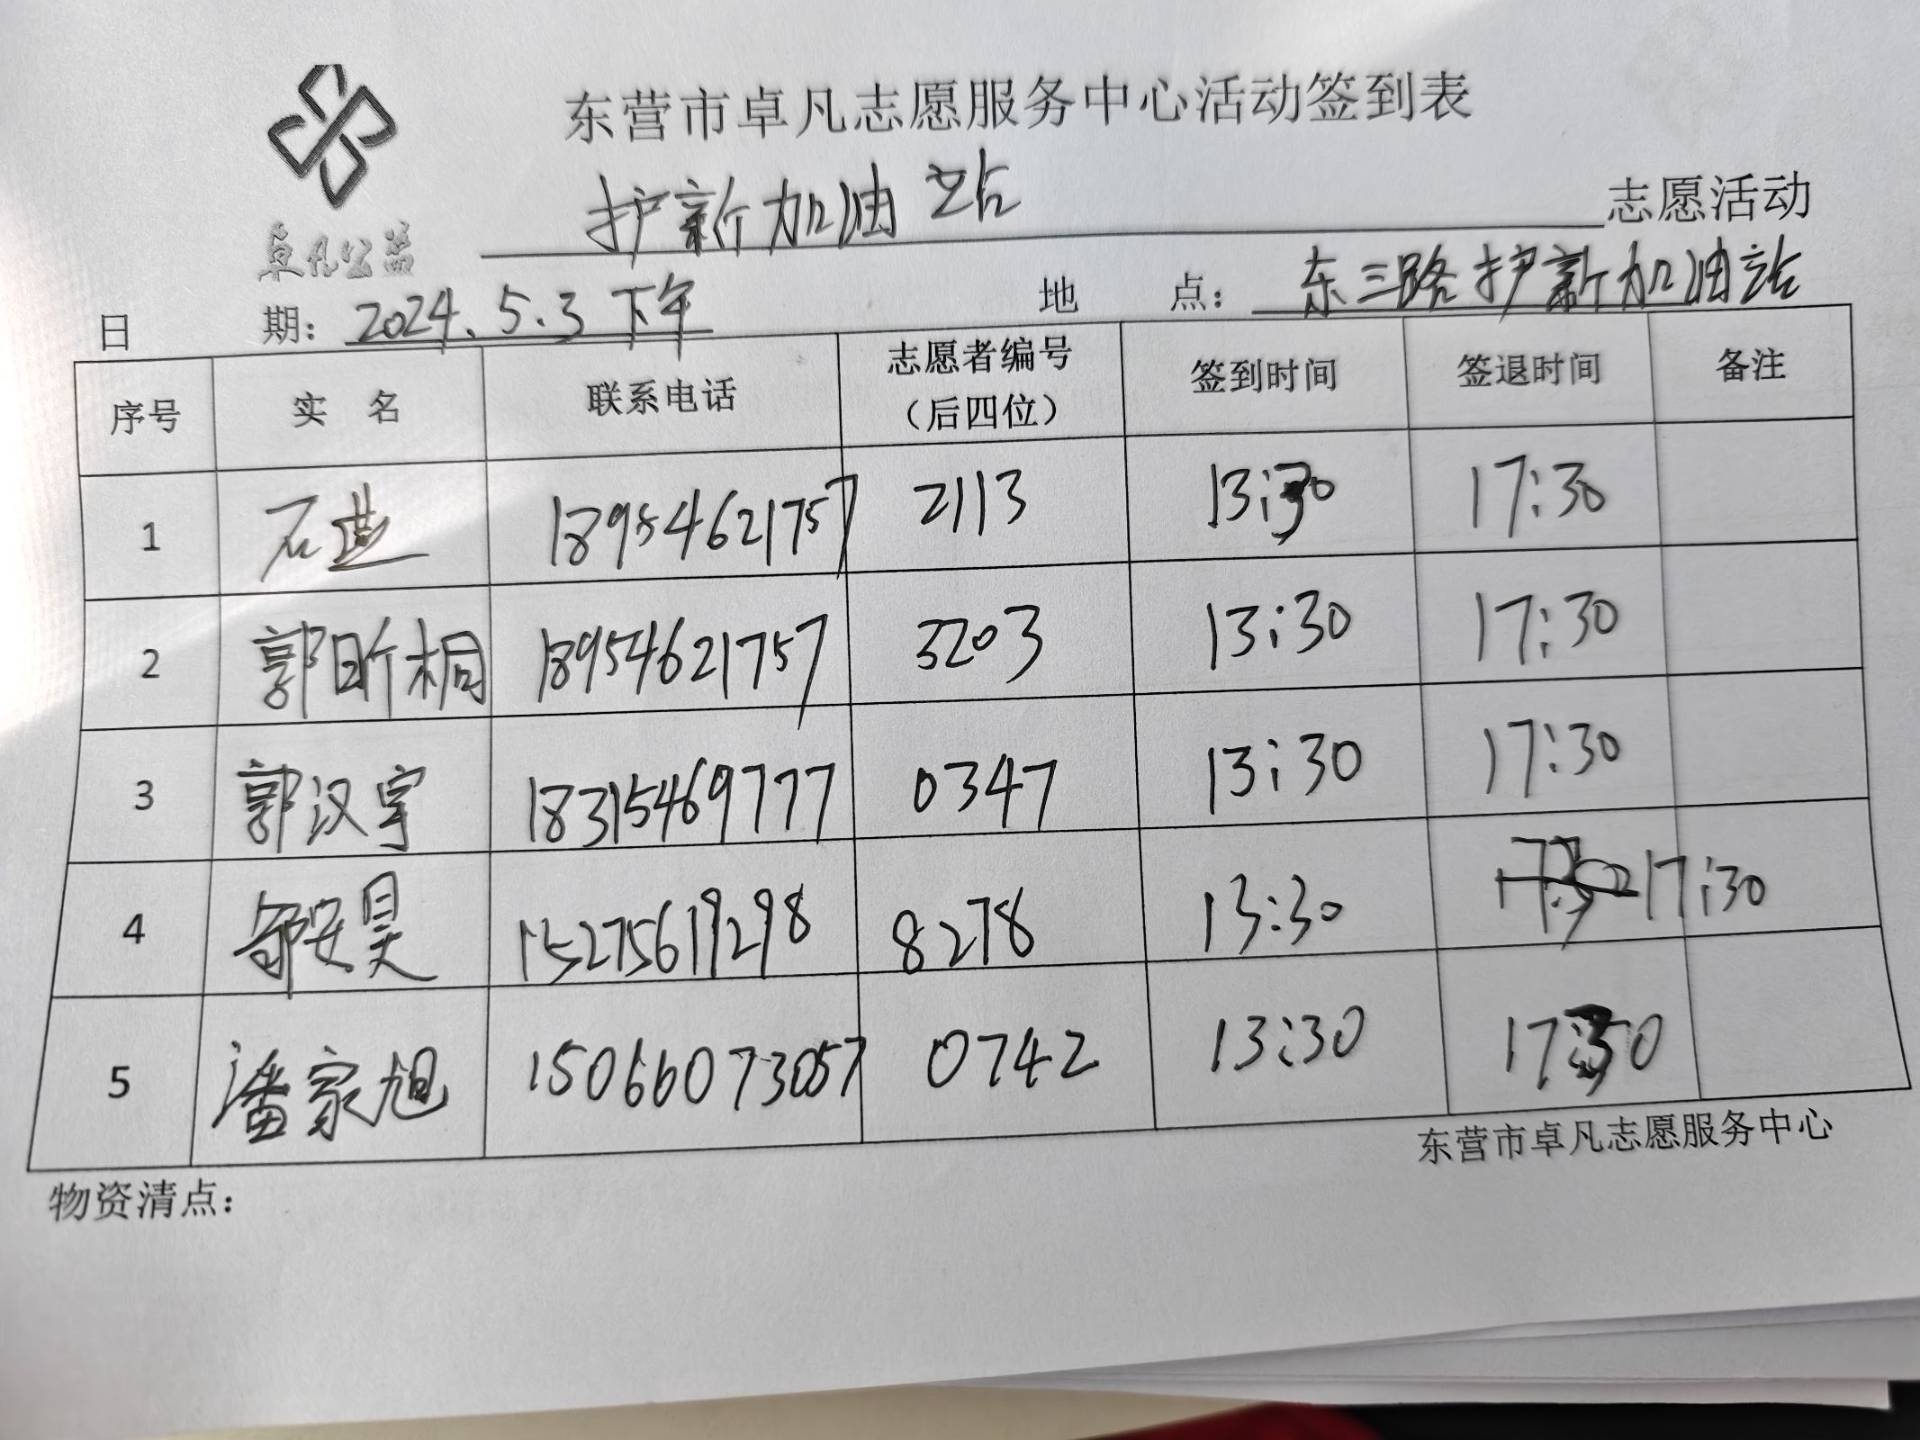 东营市卓凡志愿服务中心活动签到表
卓凡公益
护新加油站 志愿活动
日 期：2024.5.3 下午 地 点：东三路护新加油站
序号 实 名 联系电话 志愿者编号（后四位） 签到时间 签退时间 备注
1 石 18954621757 2113 13:30 17:30
2 郭昕桐 18954621757 3203 13:30 17:30
3 郭汉宇 18315469777 0347 13:30 17:30
4 安昊 15275619298 8278 13:30 17:30
5 潘家旭 15066073057 0742 13:30 17:30
东营市卓凡志愿服务中心
物资清点：